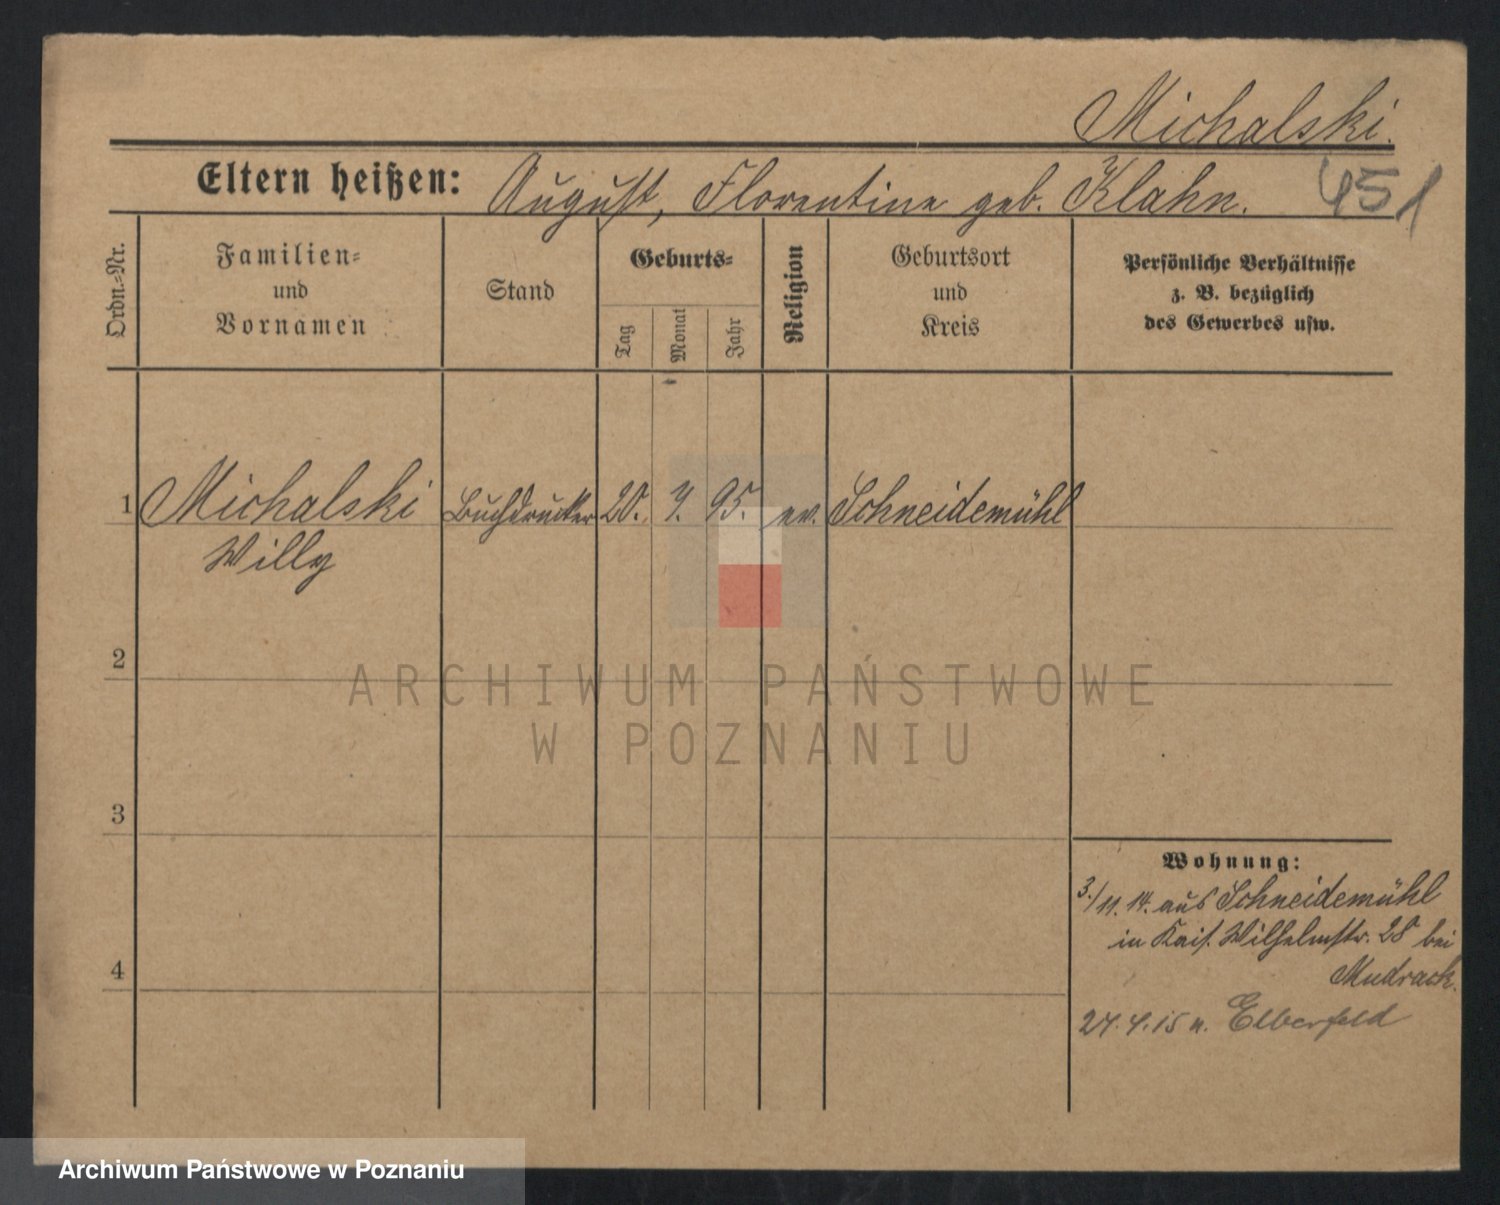 Michalski.
Eltern heißen: August, Florentine geb. Klahn. 451
Ordn.=Nr.
Familien=
und
Vornamen
Stand
Geburts=
Tag
Monat
Jahr
Religion
Geburtsort
und
Kreis
Persönliche Verhältnisse
z. B. bezüglich
des Gewerbes usw.
1 Michalski Buchdrucker 20. 95. ev. Schneidemühl
Willy
2
3
4
Wohnung:
3./11. 14. aus Schneidemühl
in Kais. Wilhelmstr. 28 bei
Mudrack.
15 n. Elberfeld
ARCHIWUM PAŃSTWOWE
W POZNANIU
Archiwum Państwowe w Poznaniu